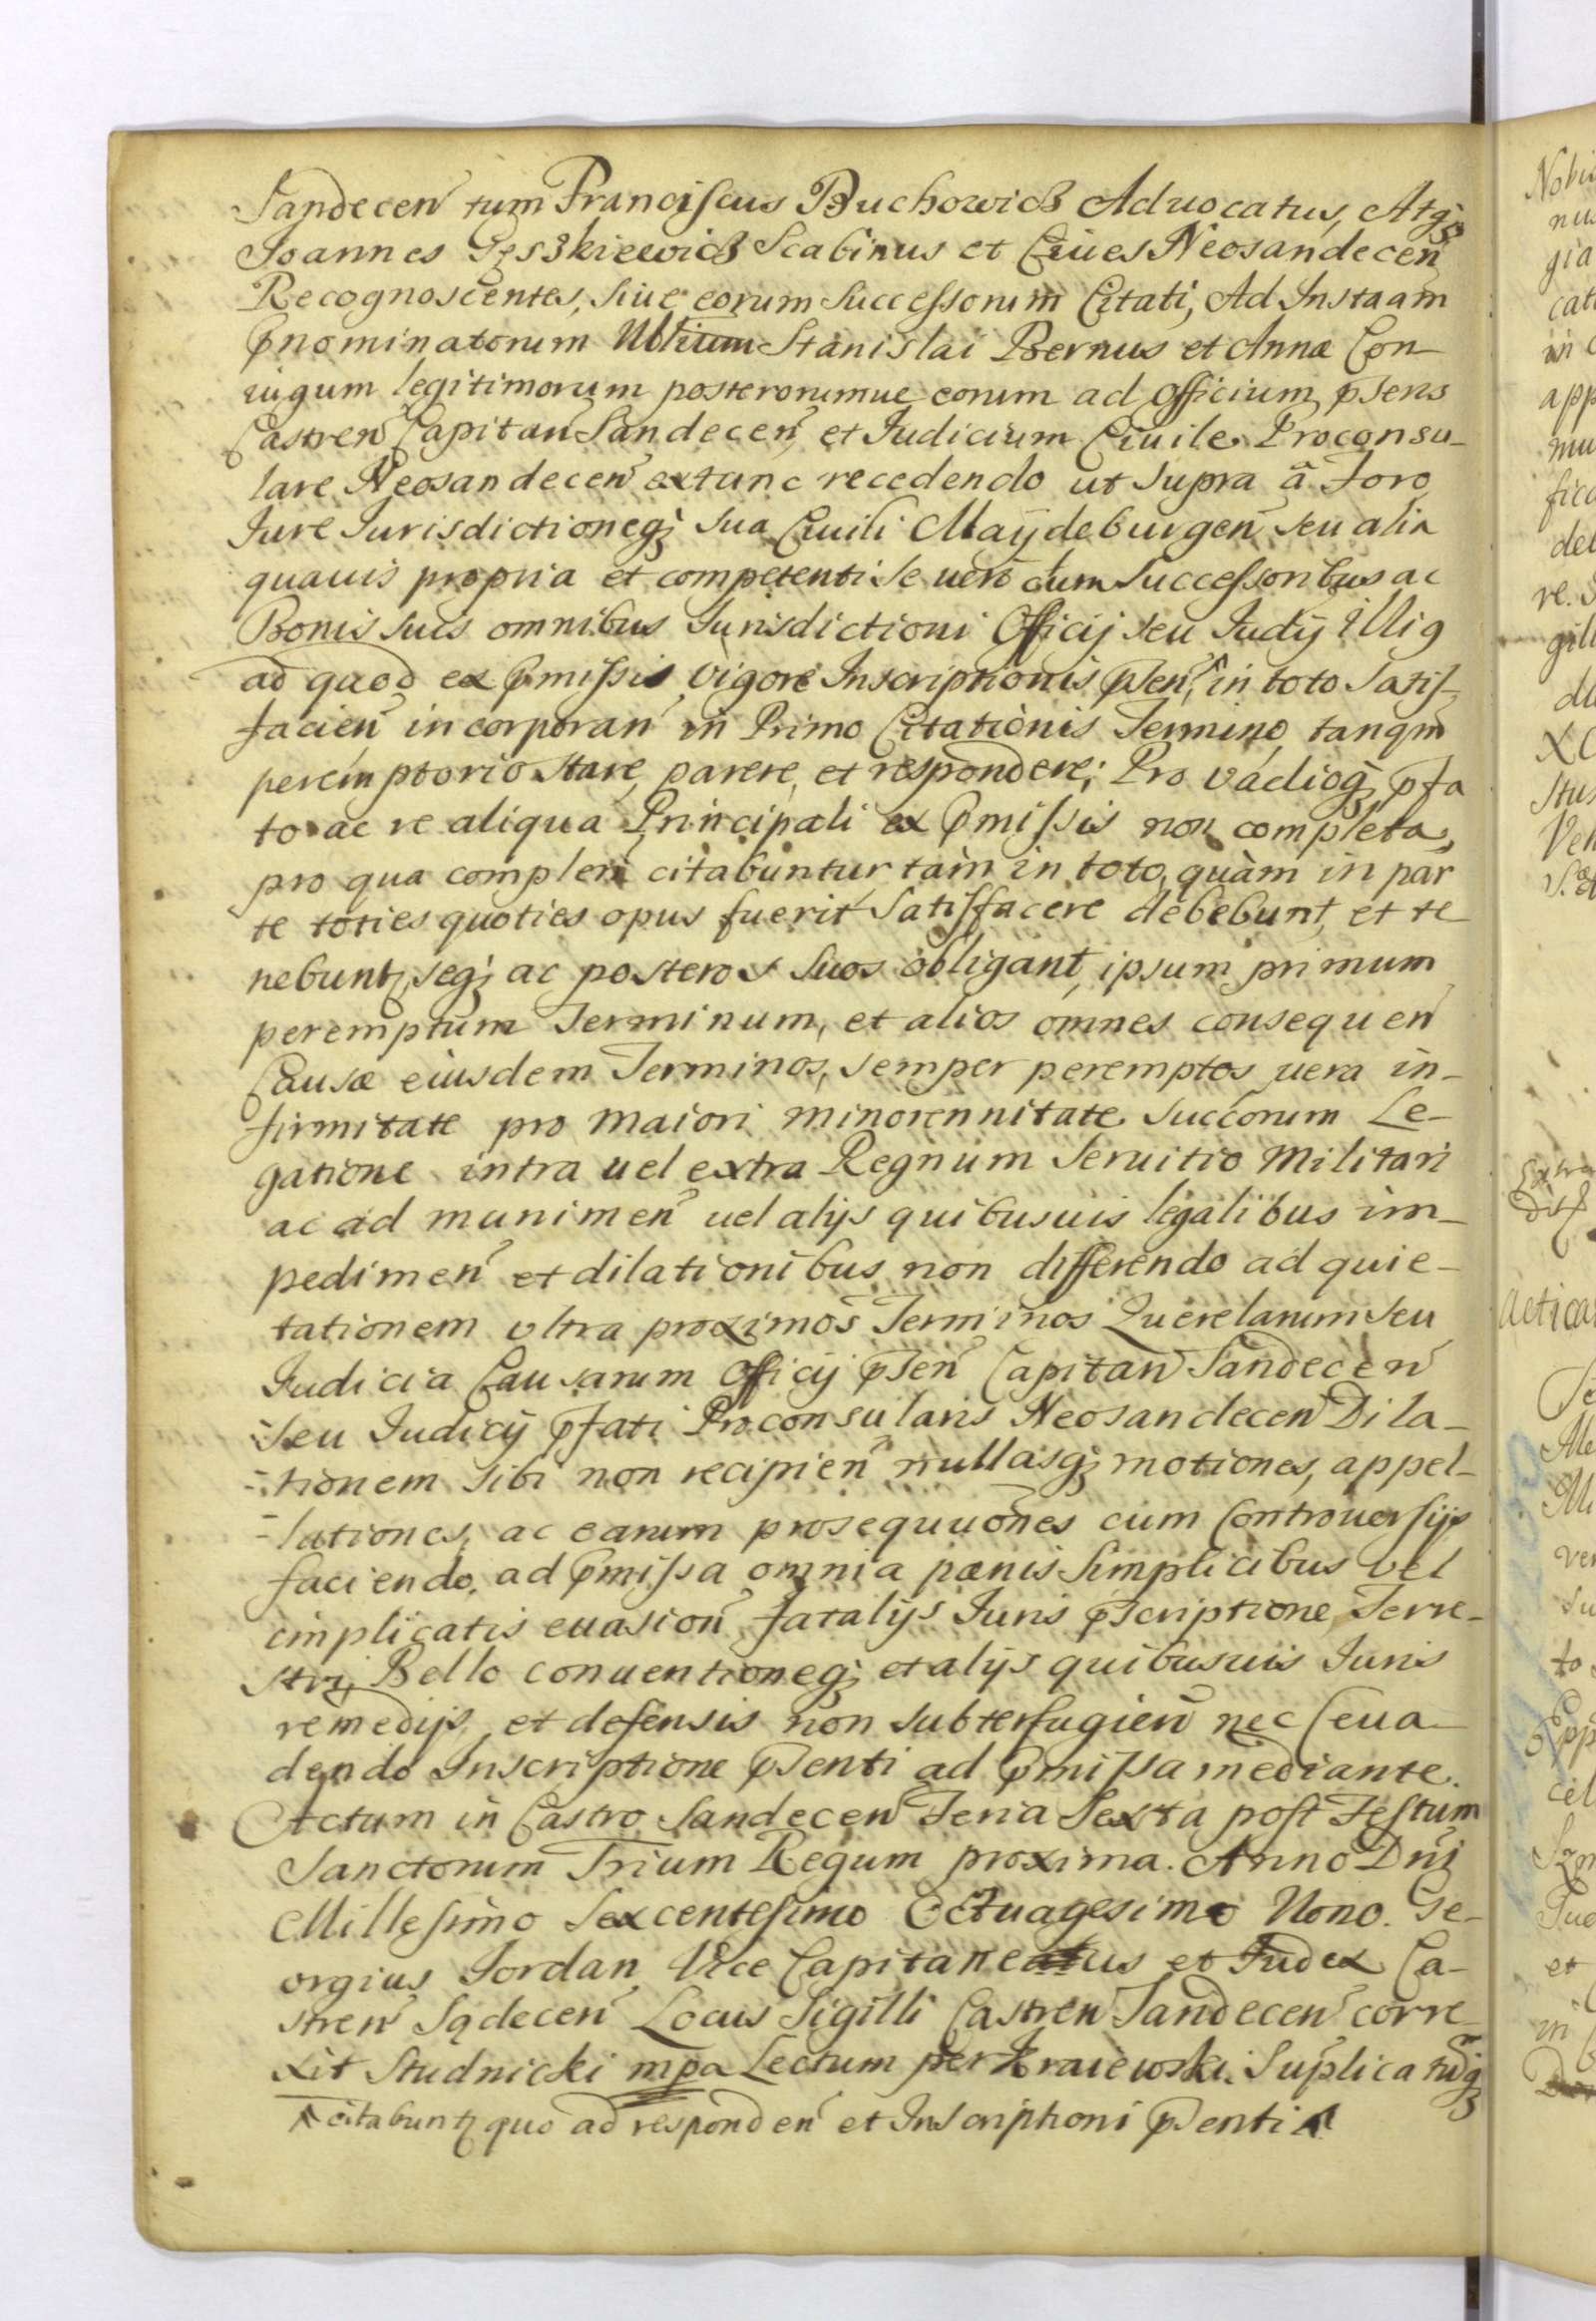 Sandecen tum Franciscus Buchowicz Aduocatus, Atq
Joannes Scabinus et Ciues Neosandecen
Recognoscentes, siue eorum successorum Citati, Ad Instaam
Pnominatorum Nblium Stanislai Bernus et Annæ Con-
iugum legitimorum posterorumue eorum ad officium psens
Castren Capitan Sandecen, et Iudicium Ciuile Proconsu-
lare Neosandecen extunc recedendo ut supra â Foro
Iure Iurisdictioneq; sua Ciuili Maydeburgen seu alia
quauis propria et competenti se uero cum successoribus ac
Bonis suis omnibus Iurisdictioni Officij seu Iudij illiq
ad quod ex pmissis vigore Inscriptionis psen, in toto satis-
facien incorporan in Primo Citationis Termino tanqm
peremptorio stare, parere, et respondere; Pro vadioq pfa
to ac re aliqua Principali ex pmissis non completa,
pro qua compleri citabuntur tam in toto, quàm in par
te toties quoties opus fuerit satisfacere debebunt, et te
nebunt, seq; ac posteros suos obligant, ipsum primum
peremptum Terminum, et alios omnes consequen
Causæ eiusdem Terminos, semper peremptos uera in-
firmitate pro maiori minorennitate succorum Le-
gatione intra uel extra Regnum seruitio Militari
ac ad munimen uel alijs quibusuis legalibus im-
pedimen et dilationibus non differendo ad quie-
tationem ultra proximos Terminos Querelarum seu
Iudicia Causarum Officij psen Capitan Sandecen
seu Iudicij pfati Proconsularis Neosandecen Dila-
tionem sibi non recipien nullasq; motiones, appel-
lationes, ac earum prosequuones cum Controuersijs
faciendo, ad pmissa omnia pœnis simplicibus vel
implicatis euasion fatalijs Iuris pscriptione Terre-
stri, Bello conuentioneq; et alijs quibusuis Iuris
remedijs, et defensis non subterfugien nec eua-
dendo Inscriptione psenti ad pmissa mediante.
Actum in Castro Sandecen Feria Sexta post Festum
Sanctorum Trium Regum proxima. Anno Dni
Millesimo Sexcentesimo Octuagesimo Nono. Ge-
orgius Jordan Vice Capitaneatus et Iudex Ca-
stren Sądecen Locus Sigilli Castren Sandecen corre-
xit Studnicki mpa Lectum per Kraiewski. Suplicatuq
citabunt quo ad responden et Inscriptioni psenti